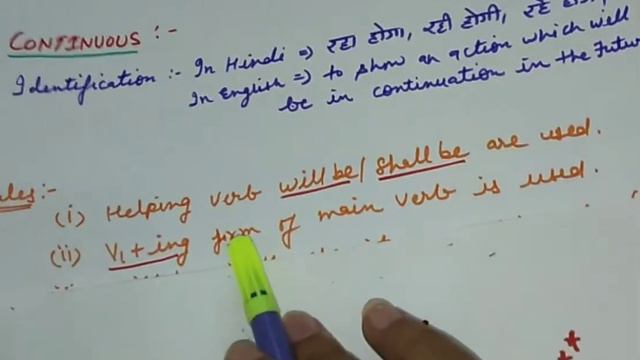 CONTINUOUS :-
Identification :- In Hindi => रहा होगा, रही होगी, रहे
In English => to show an action which will
be in continuation in the Futur
ules :-
(i) Helping verb will be/ shall be are used.
(ii) V1 + ing form of main verb is used.